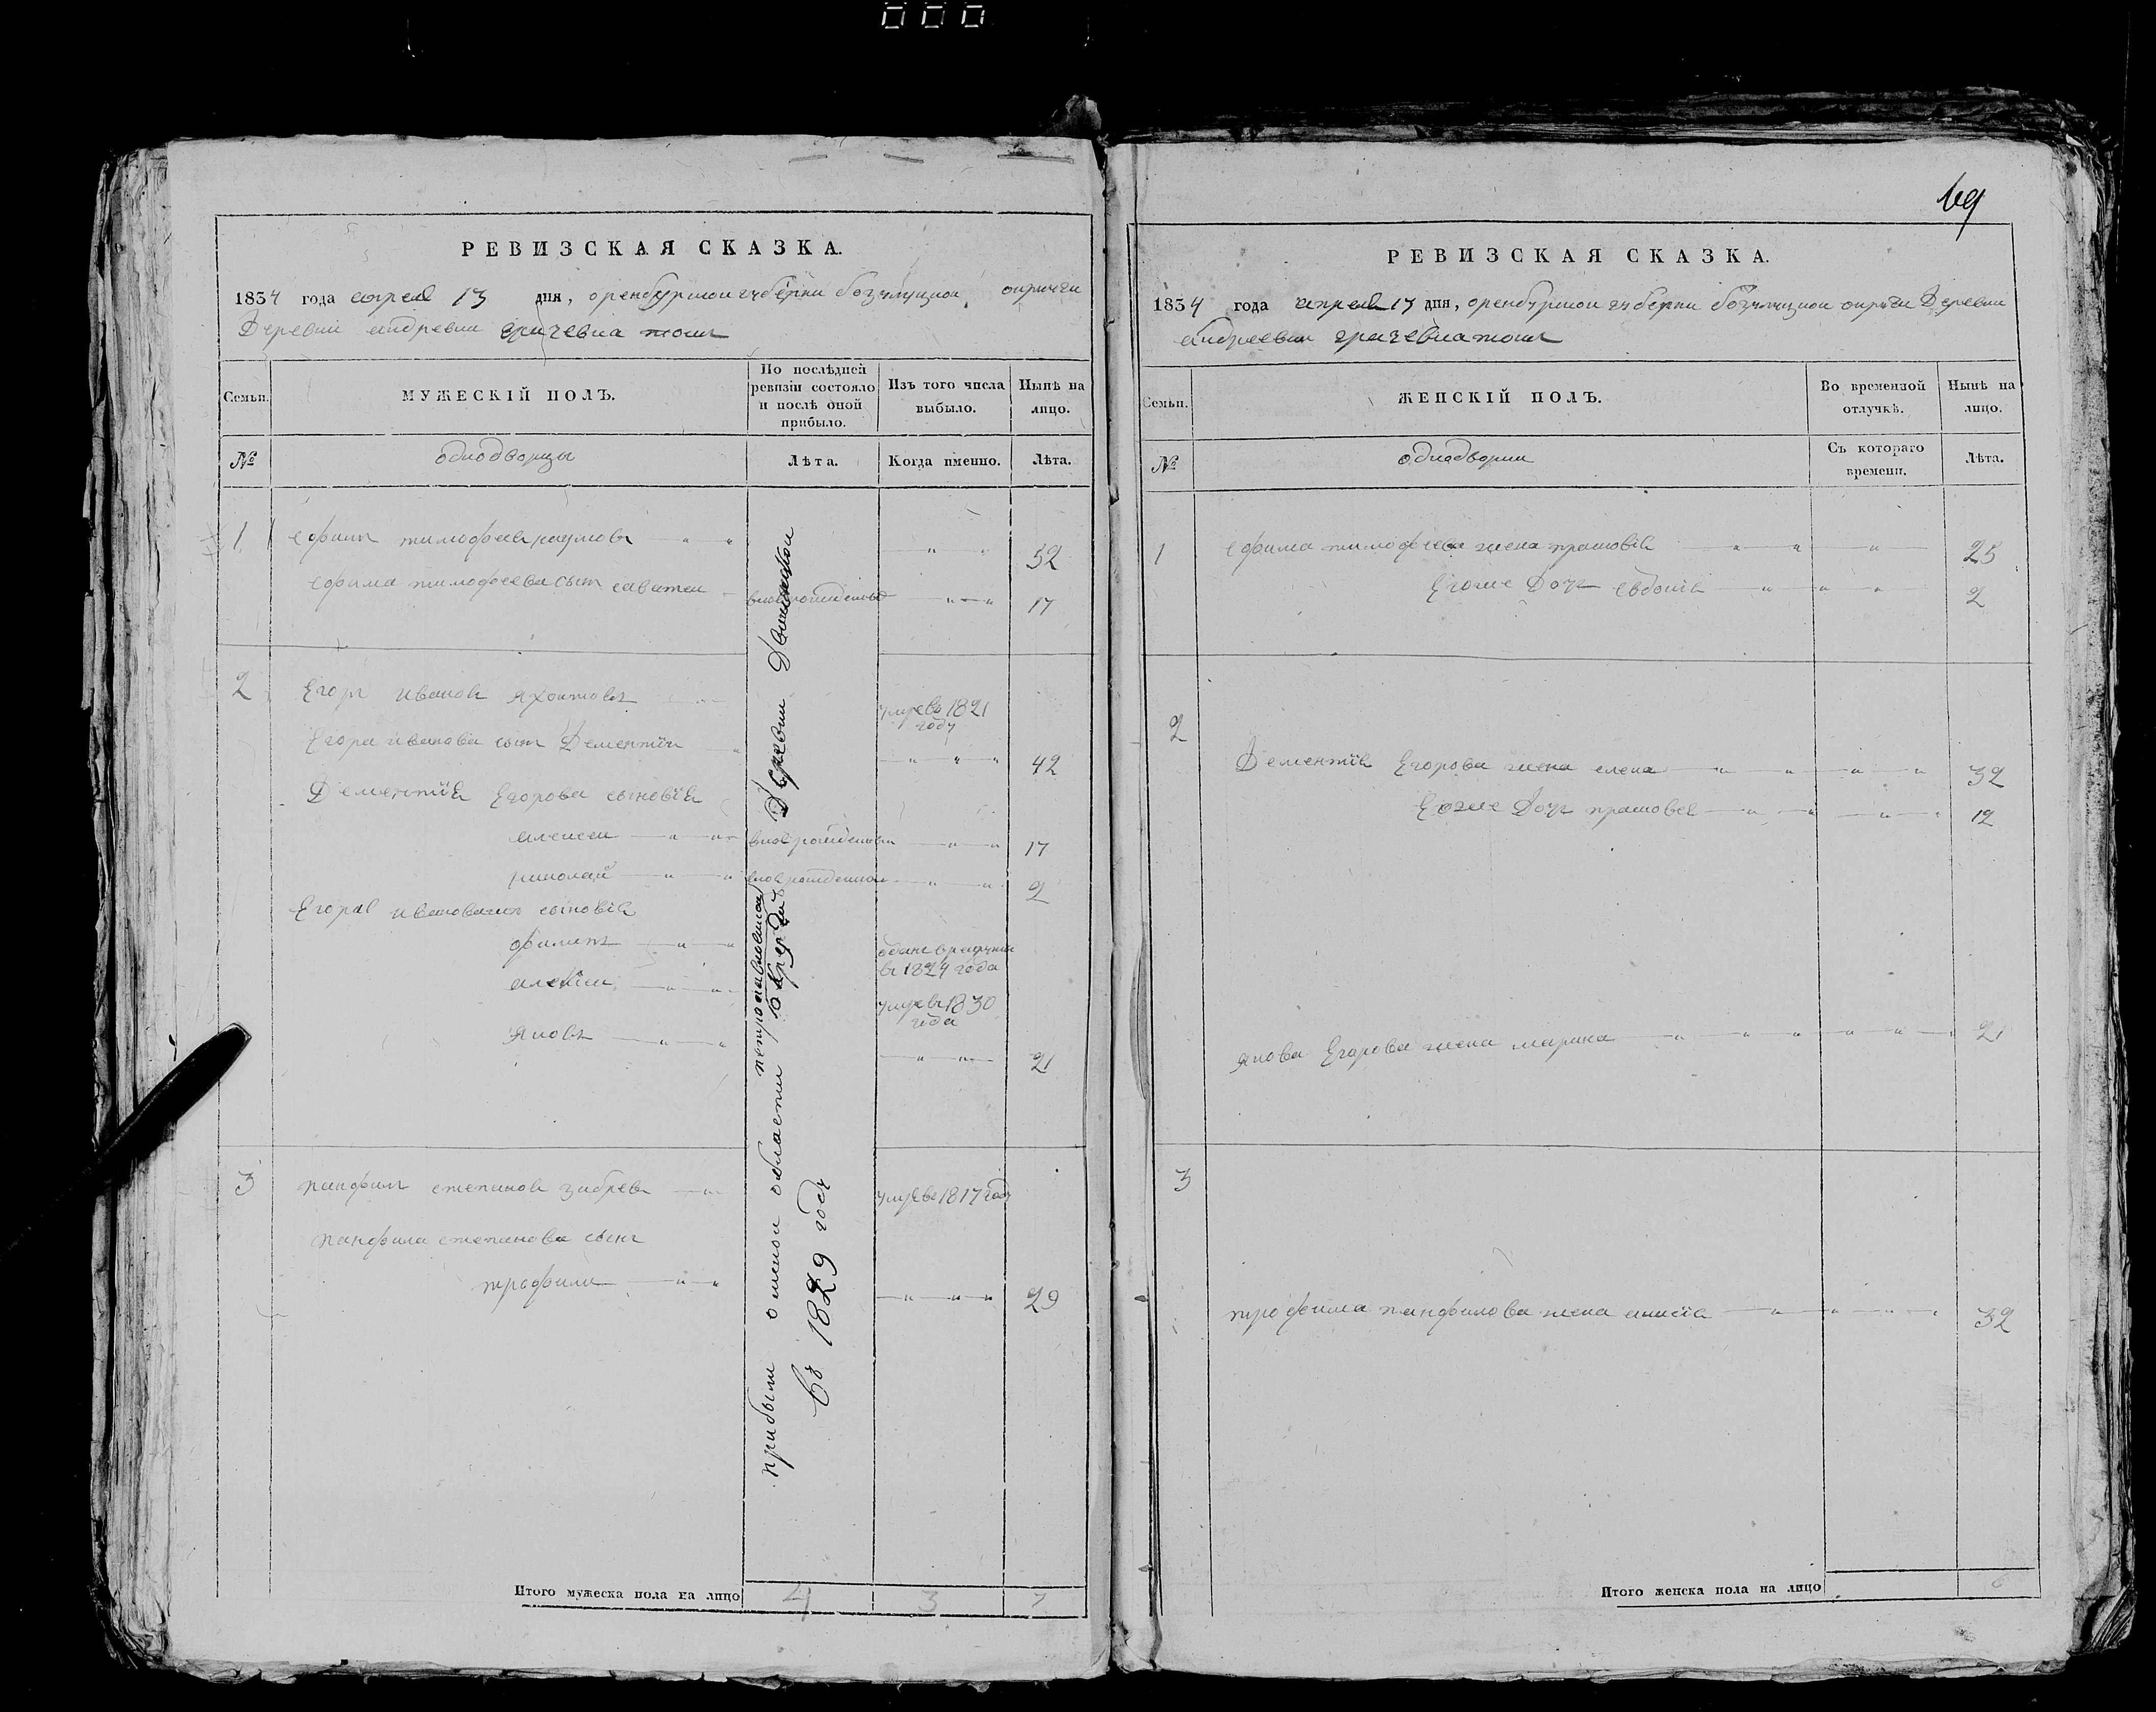 РЕВИЗСКАЯ СКАЗКА.
1834 года апреля 13 дня, оренбурской губерни бозулуцкой округи
Деревни андревки грачевка тожъ
Семьи.
МУЖЕСКІЙ ПОЛЪ.
По послѣдней ревизіи состояло и послѣ оной прибыло.
Изъ того числа выбыло.
Нынѣ на лицо.
№
однодворцы
Лѣта.
Когда именно.
Лѣта.
1
ефимъ тимофеевъ
52
ефима тимофеева сынъ саватеи
вновьрожденные
17
2
Егоръ ивановъ яхонтовъ
умре въ 1821 году
Егора иванова сынъ Дементїи
42
Дементїя Егорова сыновїя
алексеи
вновьрожденныи
17
николаи
вновьрожденнои
2
Егора ивановича сыновїя
филипъ
в 1824 года
алексїи
умре въ 1830 года
Яковъ
21
3
панфилъ степановъ
умре въ 1817 году
панфила степанова сынъ
трофимъ
29
прибыли омскои области петропавловскои
Деревни
въ 1829 году
Итого мужеска пола на лицо
4
3
7
69
РЕВИЗСКАЯ СКАЗКА.
1834 года апреля 13 дня, оренбурской губерни бозулуцкой округи Деревни
андреевки грачевка тожъ
Семьи.
ЖЕНСКІЙ ПОЛЪ.
Во временной отлучкѣ.
Нынѣ на лицо.
№
однодворки
Съ котораго времени.
Лѣта.
1
ефима тимофеева жена прасковїя
25
Егоже Дочь евдокїя
2
2
Дементїя Егорова жена елена
32
Егоже Дочь прасковея
12
якова Егорова жена марина
21
3
трофима панфилова жена анисїя
32
Итого женска пола на лицо